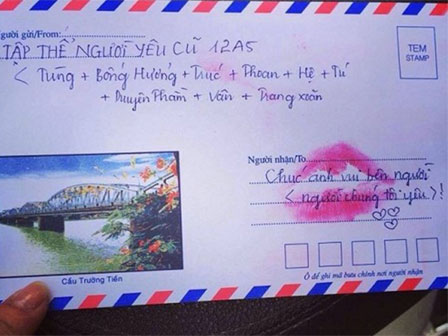 Người gửi/From:
TẬP THỂ NGƯỜI YÊU CŨ 12A5
< Tùng + Bông Hương + Trúc + Phoan + Hệ + Tú
+ Duyên Phạm + Vân + Trang xoăn
TEM
STAMP
Người nhận/To
Chúc anh vui bên người
< người chúng tôi yêu>!
Cầu Trường Tiền
Ô để ghi mã bưu chính nơi người nhận